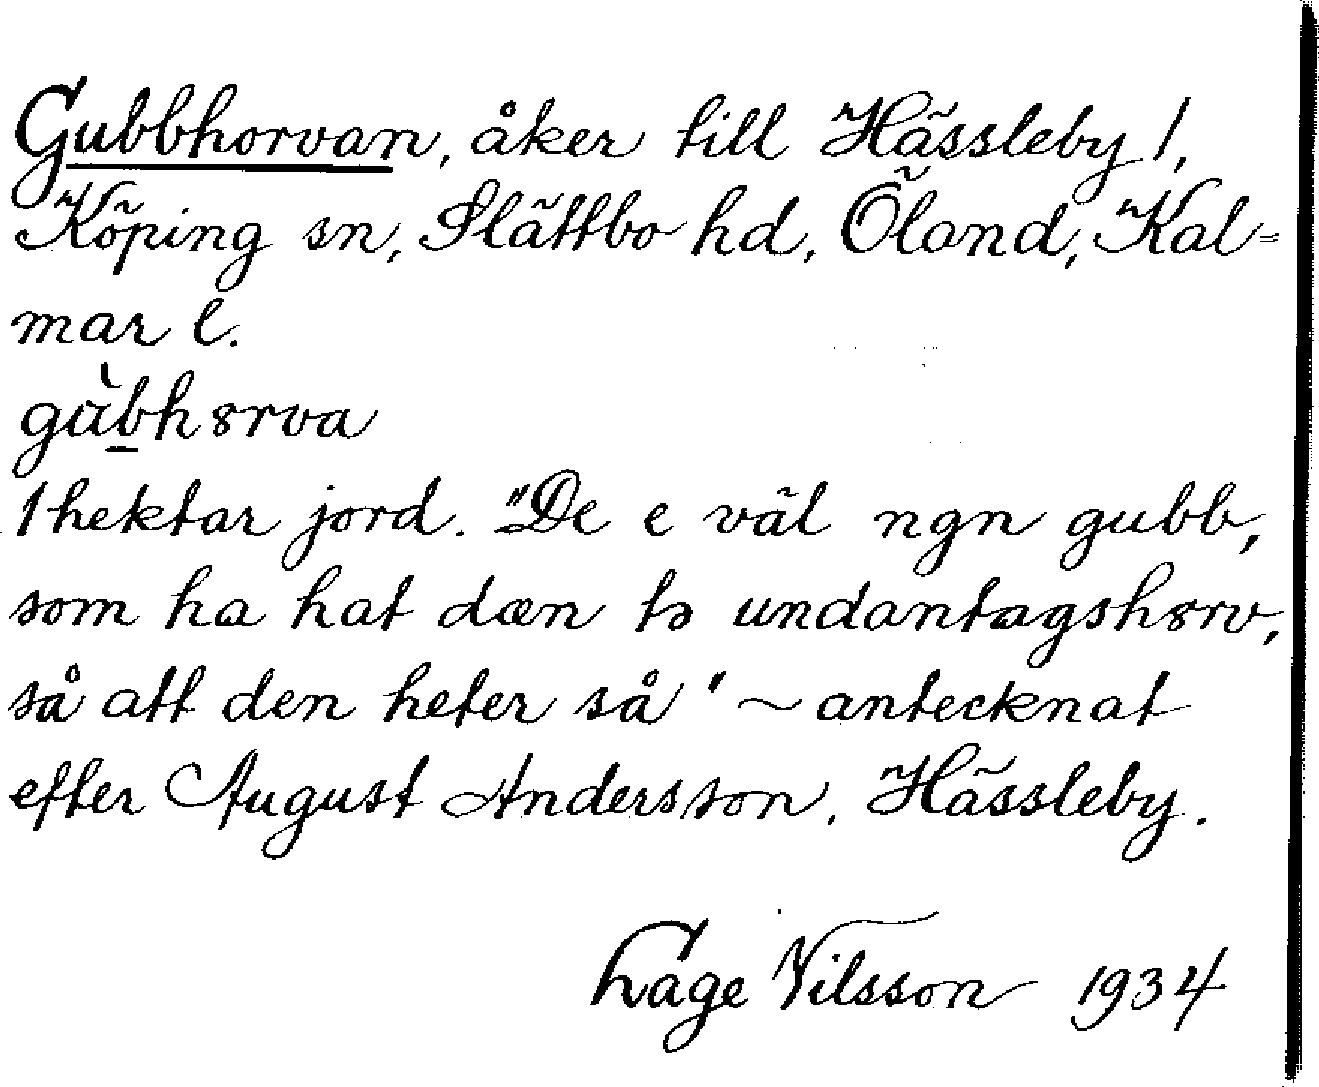 Gubbhorvan, åker till Hässleby 1,
Köping sn, Slättbo hd, Öland, Kal=
mar l.
gùbh8rva
1 hektar jord. "De e väl ngn gubb,
som ha hat dæn tə undantagsh8rv,
så att den heter så" ~ antecknat
efter August Andersson, Hässleby.
Lage Nilsson 1934